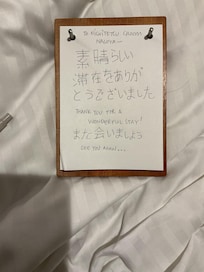 素晴らしい
滞在をありが
とうございました
THANK YOU FOR A
WONDERFUL STAY!
また会いましょう
SEE YOU AGAIN...